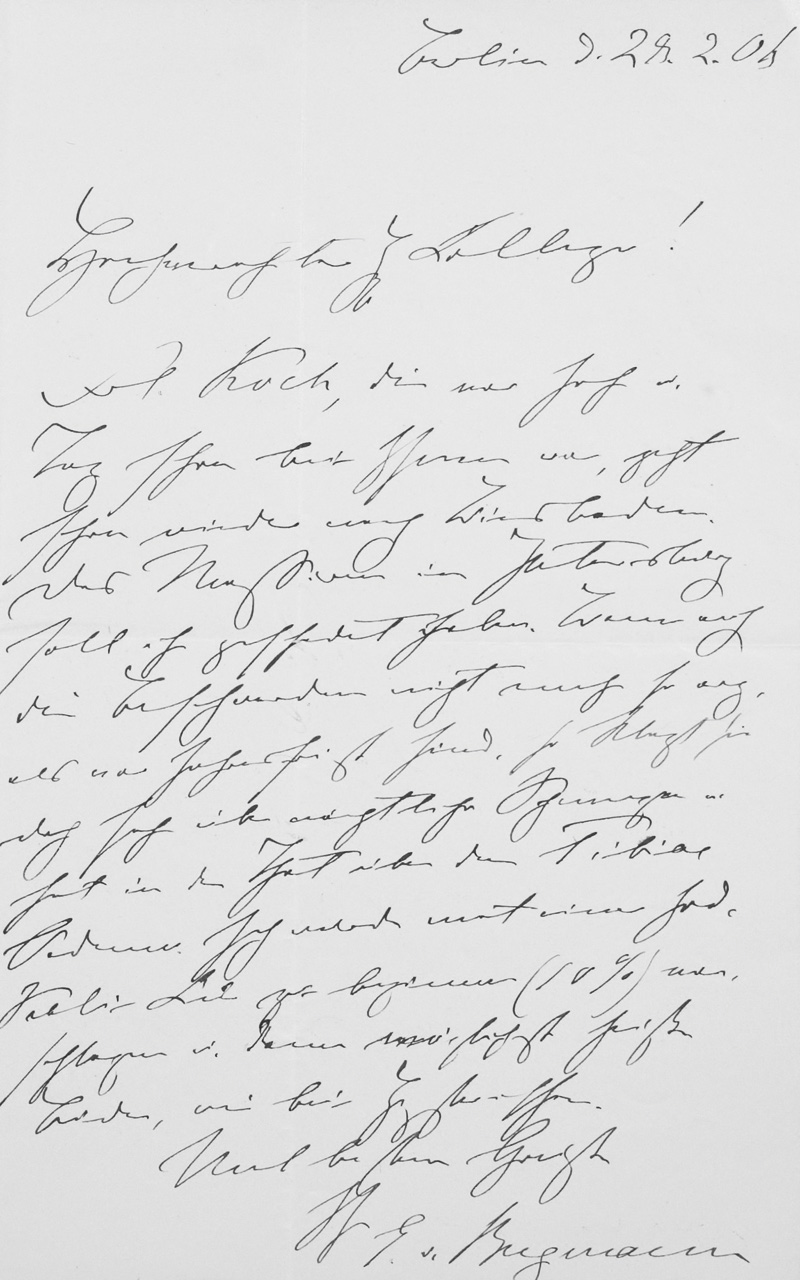 Berlin d. 28. 2. 06
Hochverehrter H Kollege!
Frl. Koch, die vor Jahr u.
Tag schon bei Ihnen war, geht
schon wieder nach Wiesbaden.
Das Massiren in Petersburg
soll ihr geschadet haben. Wenn auch
die Beschwerden nicht mehr so arg,
als vor Jahresfrist sind, so klagt sie
doch sich über nächtliche
hat in der That über den Tibiae
Oedeme. Ich würde mit einer Jod-
Kali- zu beginnen (10%) vor-
schlagen u. dann möglichst heiße
Bäder, wie bei
Mit besten Grüßen
Ihr E. v. Bergmann